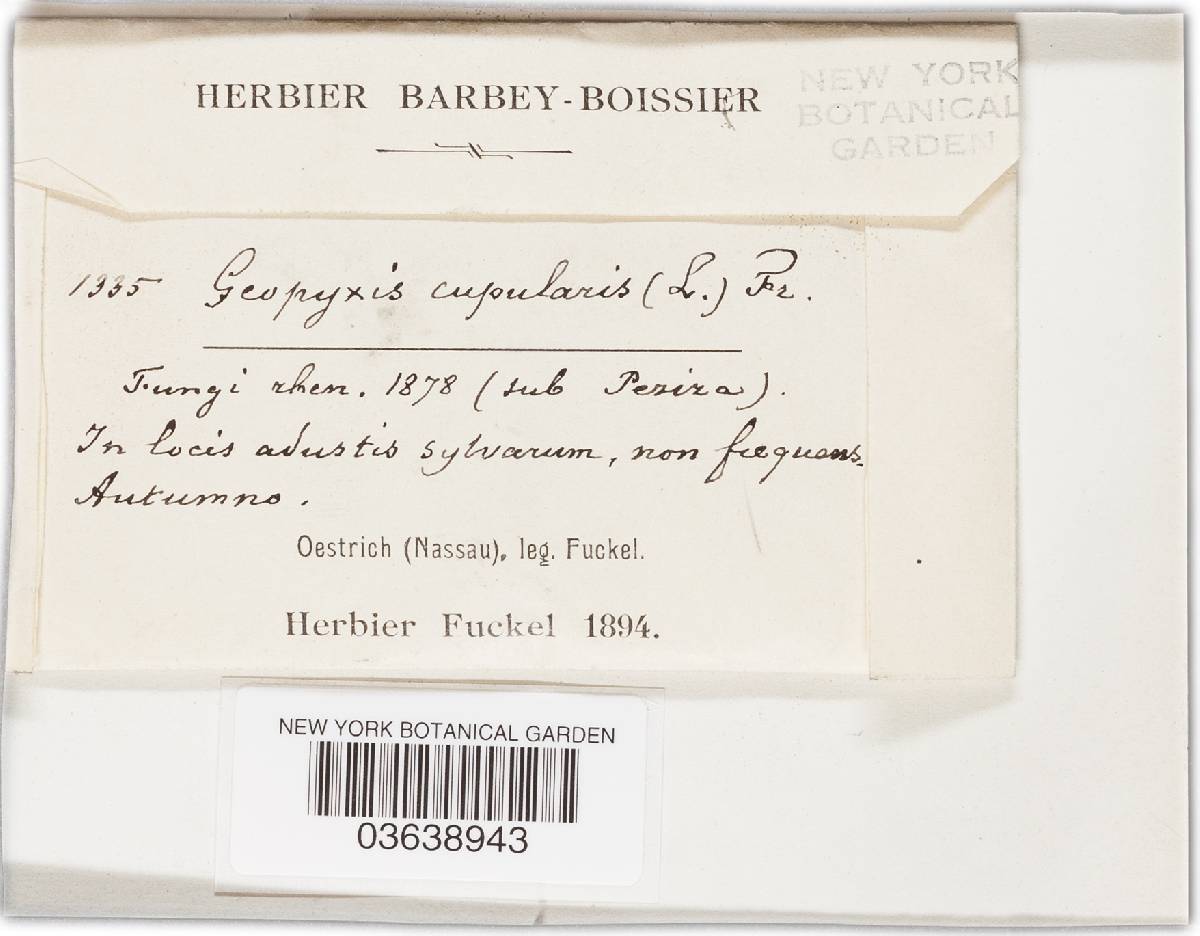 HERBIER BARBEY-BOISSIER
NEW YORK
BOTANICAL
GARDEN
1335 Geopyxis cupularis (L.) Fr.
Fungi rhen. 1878 (sub Peziza).
In locis adustis sylvarum, non frequens.
Autumno.
Oestrich (Nassau), leg. Fuckel.
Herbier Fuckel 1894.
NEW YORK BOTANICAL GARDEN
03638943